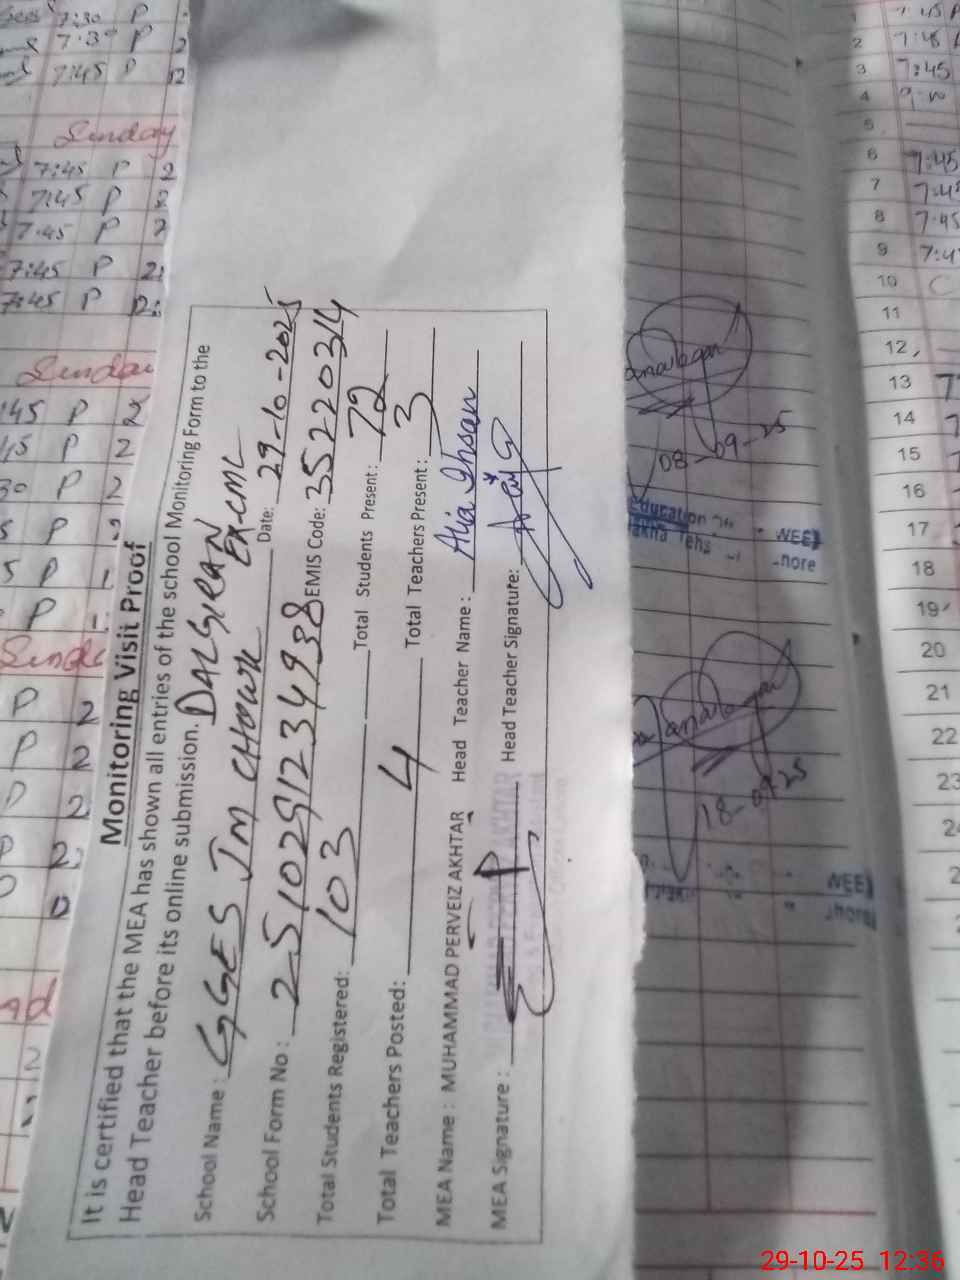 Monitoring Visit Proof
It is certified that the MEA has shown all entries of the school Monitoring Form to the
Head Teacher before its online submission.
School Name : GGES JM CHOWK DALGRAN EX-CML
School Form No : 2510291234938 Date: 29-10-2025
Total Students Registered: 103 EMIS Code: 35220314
Total Students Present: 72
Total Teachers Posted: 4 Total Teachers Present: 3
MEA Name : MUHAMMAD PERVEIZ AKHTAR Head Teacher Name: Alia Ihsan
MEA Signature : Head Teacher Signature:
7:30 P
7:30 P 2
7:45 P 12
Sunday
7:45 P 2
7:45 P 2
7:45 P 2
7:45 P 2
7:45 P 12
Sunday
P 2
P 2
P 2
P
P
P
P 2
P 2
2
2
08-09-25
Education
WEE
hore
18-09-25
WEE
hore
2 7:45
3 7:45
4
5
6 7:45
7 7:45
8 7:45
9 7:4
10
11
12
13
14
15
16
17
18
19
20
21
22
23
29-10-25 12:36